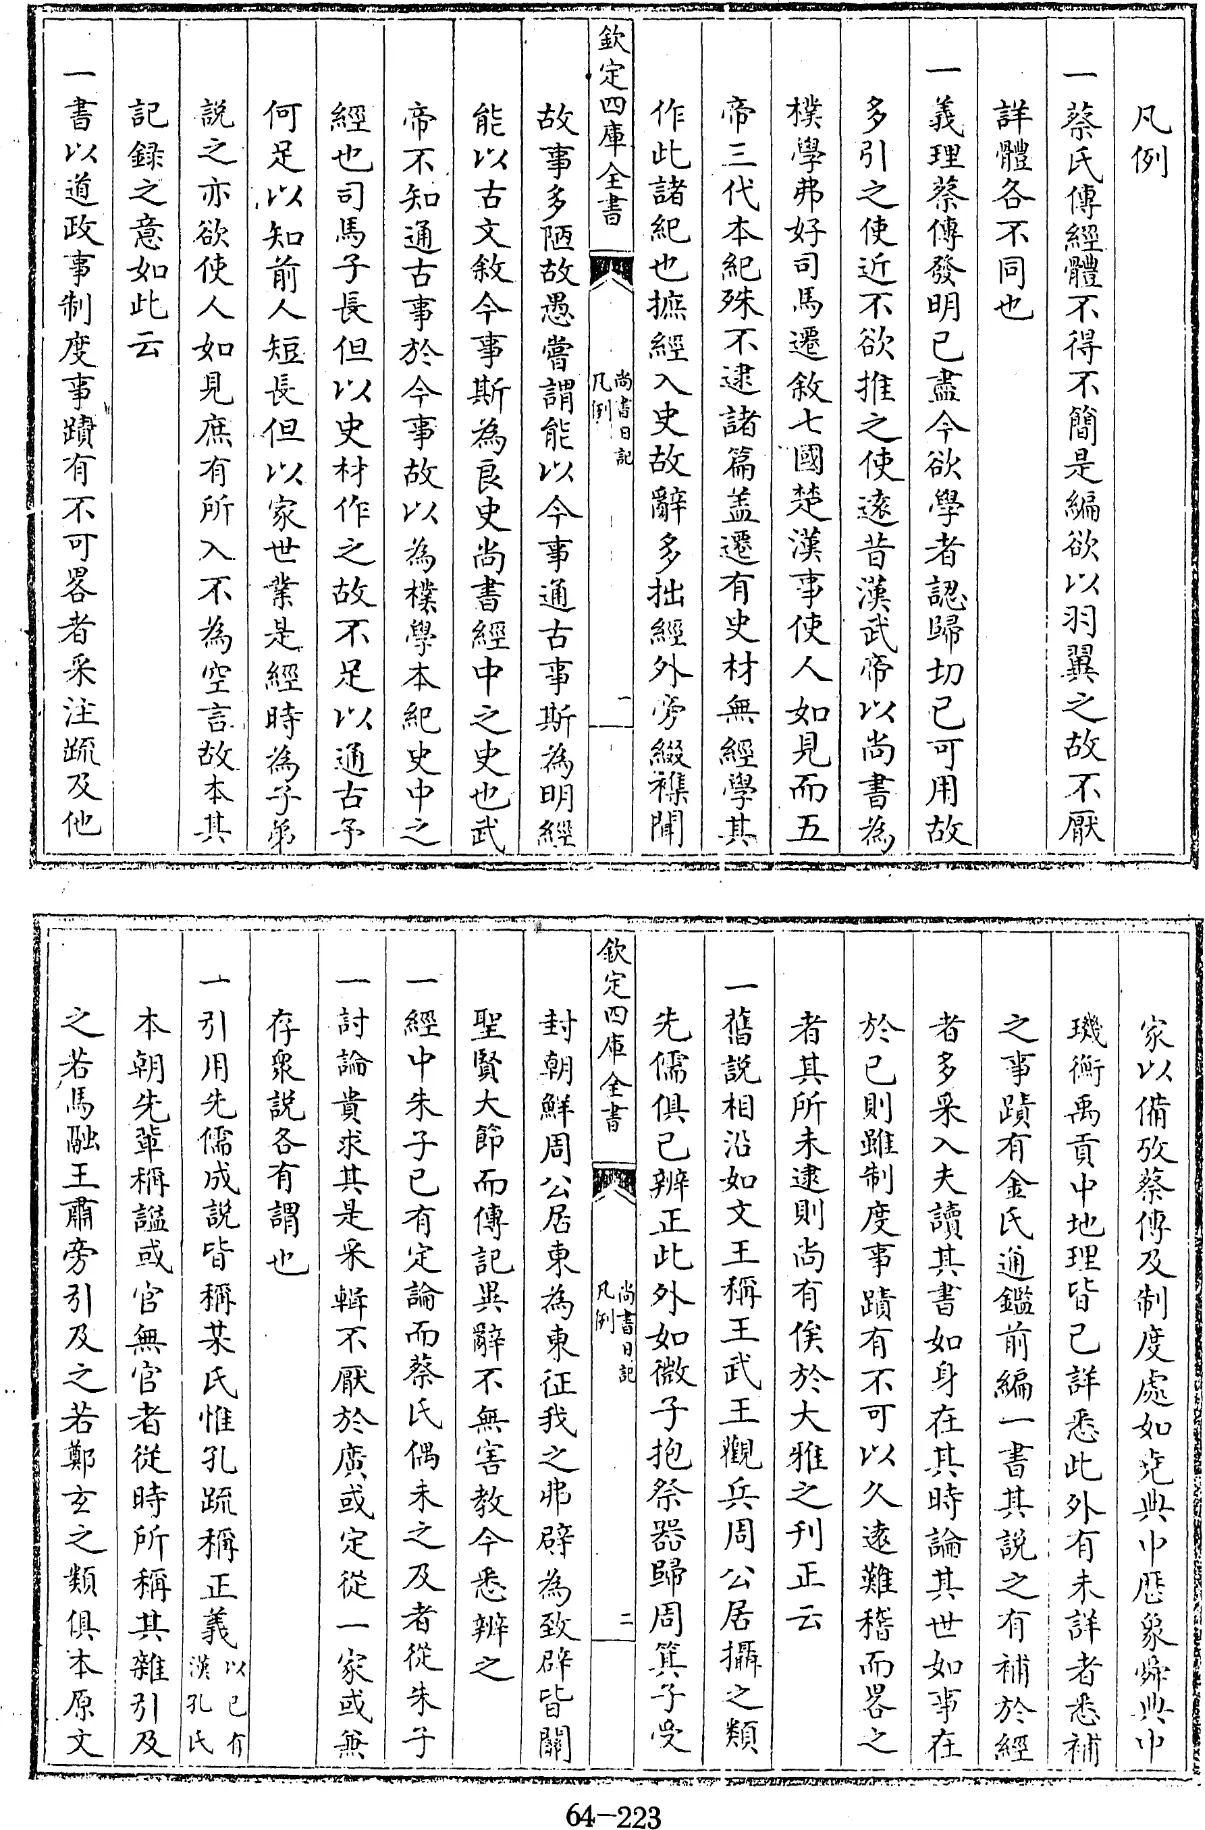 凡例
一蔡氏傳經體不得不簡是編欲以羽翼之故不厭
詳體各不同也
一義理蔡傳發明已盡今欲學者認歸切已可用故
多引之使近不欲推之使逺昔漢武帝以尚書為
樸學弗好司馬遷敘七國楚漢事使人如見而五
帝三代本紀殊不逮諸篇盖遷有史材無經學其
作此諸紀也摭經入史故辭多拙經外旁綴襍聞
欽定四庫全書
尚書日記
凡例
一
故事多陋故愚嘗謂能以今事通古事斯為明經
能以古文敘今事斯為良史尚書經中之史也武
帝不知通古事於今事故以為樸學本紀史中之
經也司馬子長但以史材作之故不足以通古予
何足以知前人短長但以家世業是經時為子弟
説之亦欲使人如見庶有所入不為空言故本其
記録之意如此云
一書以道政事制度事蹟有不可畧者采注疏及他
家以備攷蔡傳及制度處如堯典中厯象舜典中
璣衡禹貢中地理皆已詳悉此外有未詳者悉補
之事蹟有金氏通鑑前編一書其説之有補於經
者多采入夫讀其書如身在其時論其世如事在
於已則雖制度事蹟有不可以久逺難稽而畧之
者其所未逮則尚有俟於大雅之刋正云
一舊説相沿如文王稱王武王觀兵周公居攝之類
先儒俱已辨正此外如微子抱祭器歸周箕子受
欽定四庫全書
尚書日記
凡例
二
封朝鮮周公居東為東征我之弗辟為致辟皆關
聖賢大節而傳記異辭不無害教今悉辨之
一經中朱子已有定論而蔡氏偶未之及者從朱子
一討論貴求其是采輯不厭於廣或定從一家或兼
存衆説各有謂也
一引用先儒成説皆稱某氏惟孔疏稱正義以已有
漢孔氏
本朝先輩稱諡或官無官者從時所稱其雜引及
之若馬融王肅旁引及之若鄭玄之類俱本原文
64-223